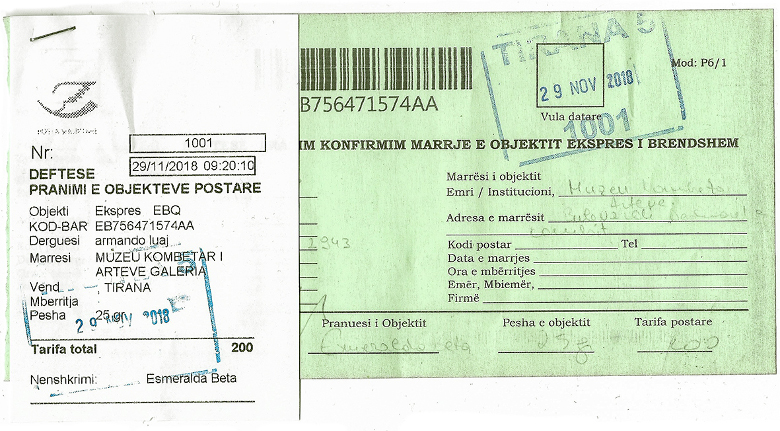 POSTA SHQIPTARE
Nr: 1001
29/11/2018 09:20:10
DEFTESE
PRANIMI E OBJEKTEVE POSTARE
Objekti Ekspres EBQ
KOD-BAR EB756471574AA
Derguesi armando luaj
Marresi MUZEU KOMBETAR I
ARTEVE GALERIA
Vend , TIRANA
Mberritja
Pesha 25 gr
29 NOV 2018
Tarifa total 200
Nenshkrimi: Esmeralda Beta
EB756471574AA
TIRANA 5
29 NOV 2018
1001
Mod: P6/1
Vula datare
IM KONFIRMIM MARRJE E OBJEKTIT EKSPRES I BRENDSHEM
Marrësi i objektit
Emri / Institucioni, Muzeu Kombetar
Arteve
Adresa e marrësit
1943
Kodi postar Tel
Data e marrjes
Ora e mbërritjes
Emër, Mbiemër,
Firmë
Pranuesi i Objektit Pesha e objektit Tarifa postare
Esmeralda Beta 25 g 200